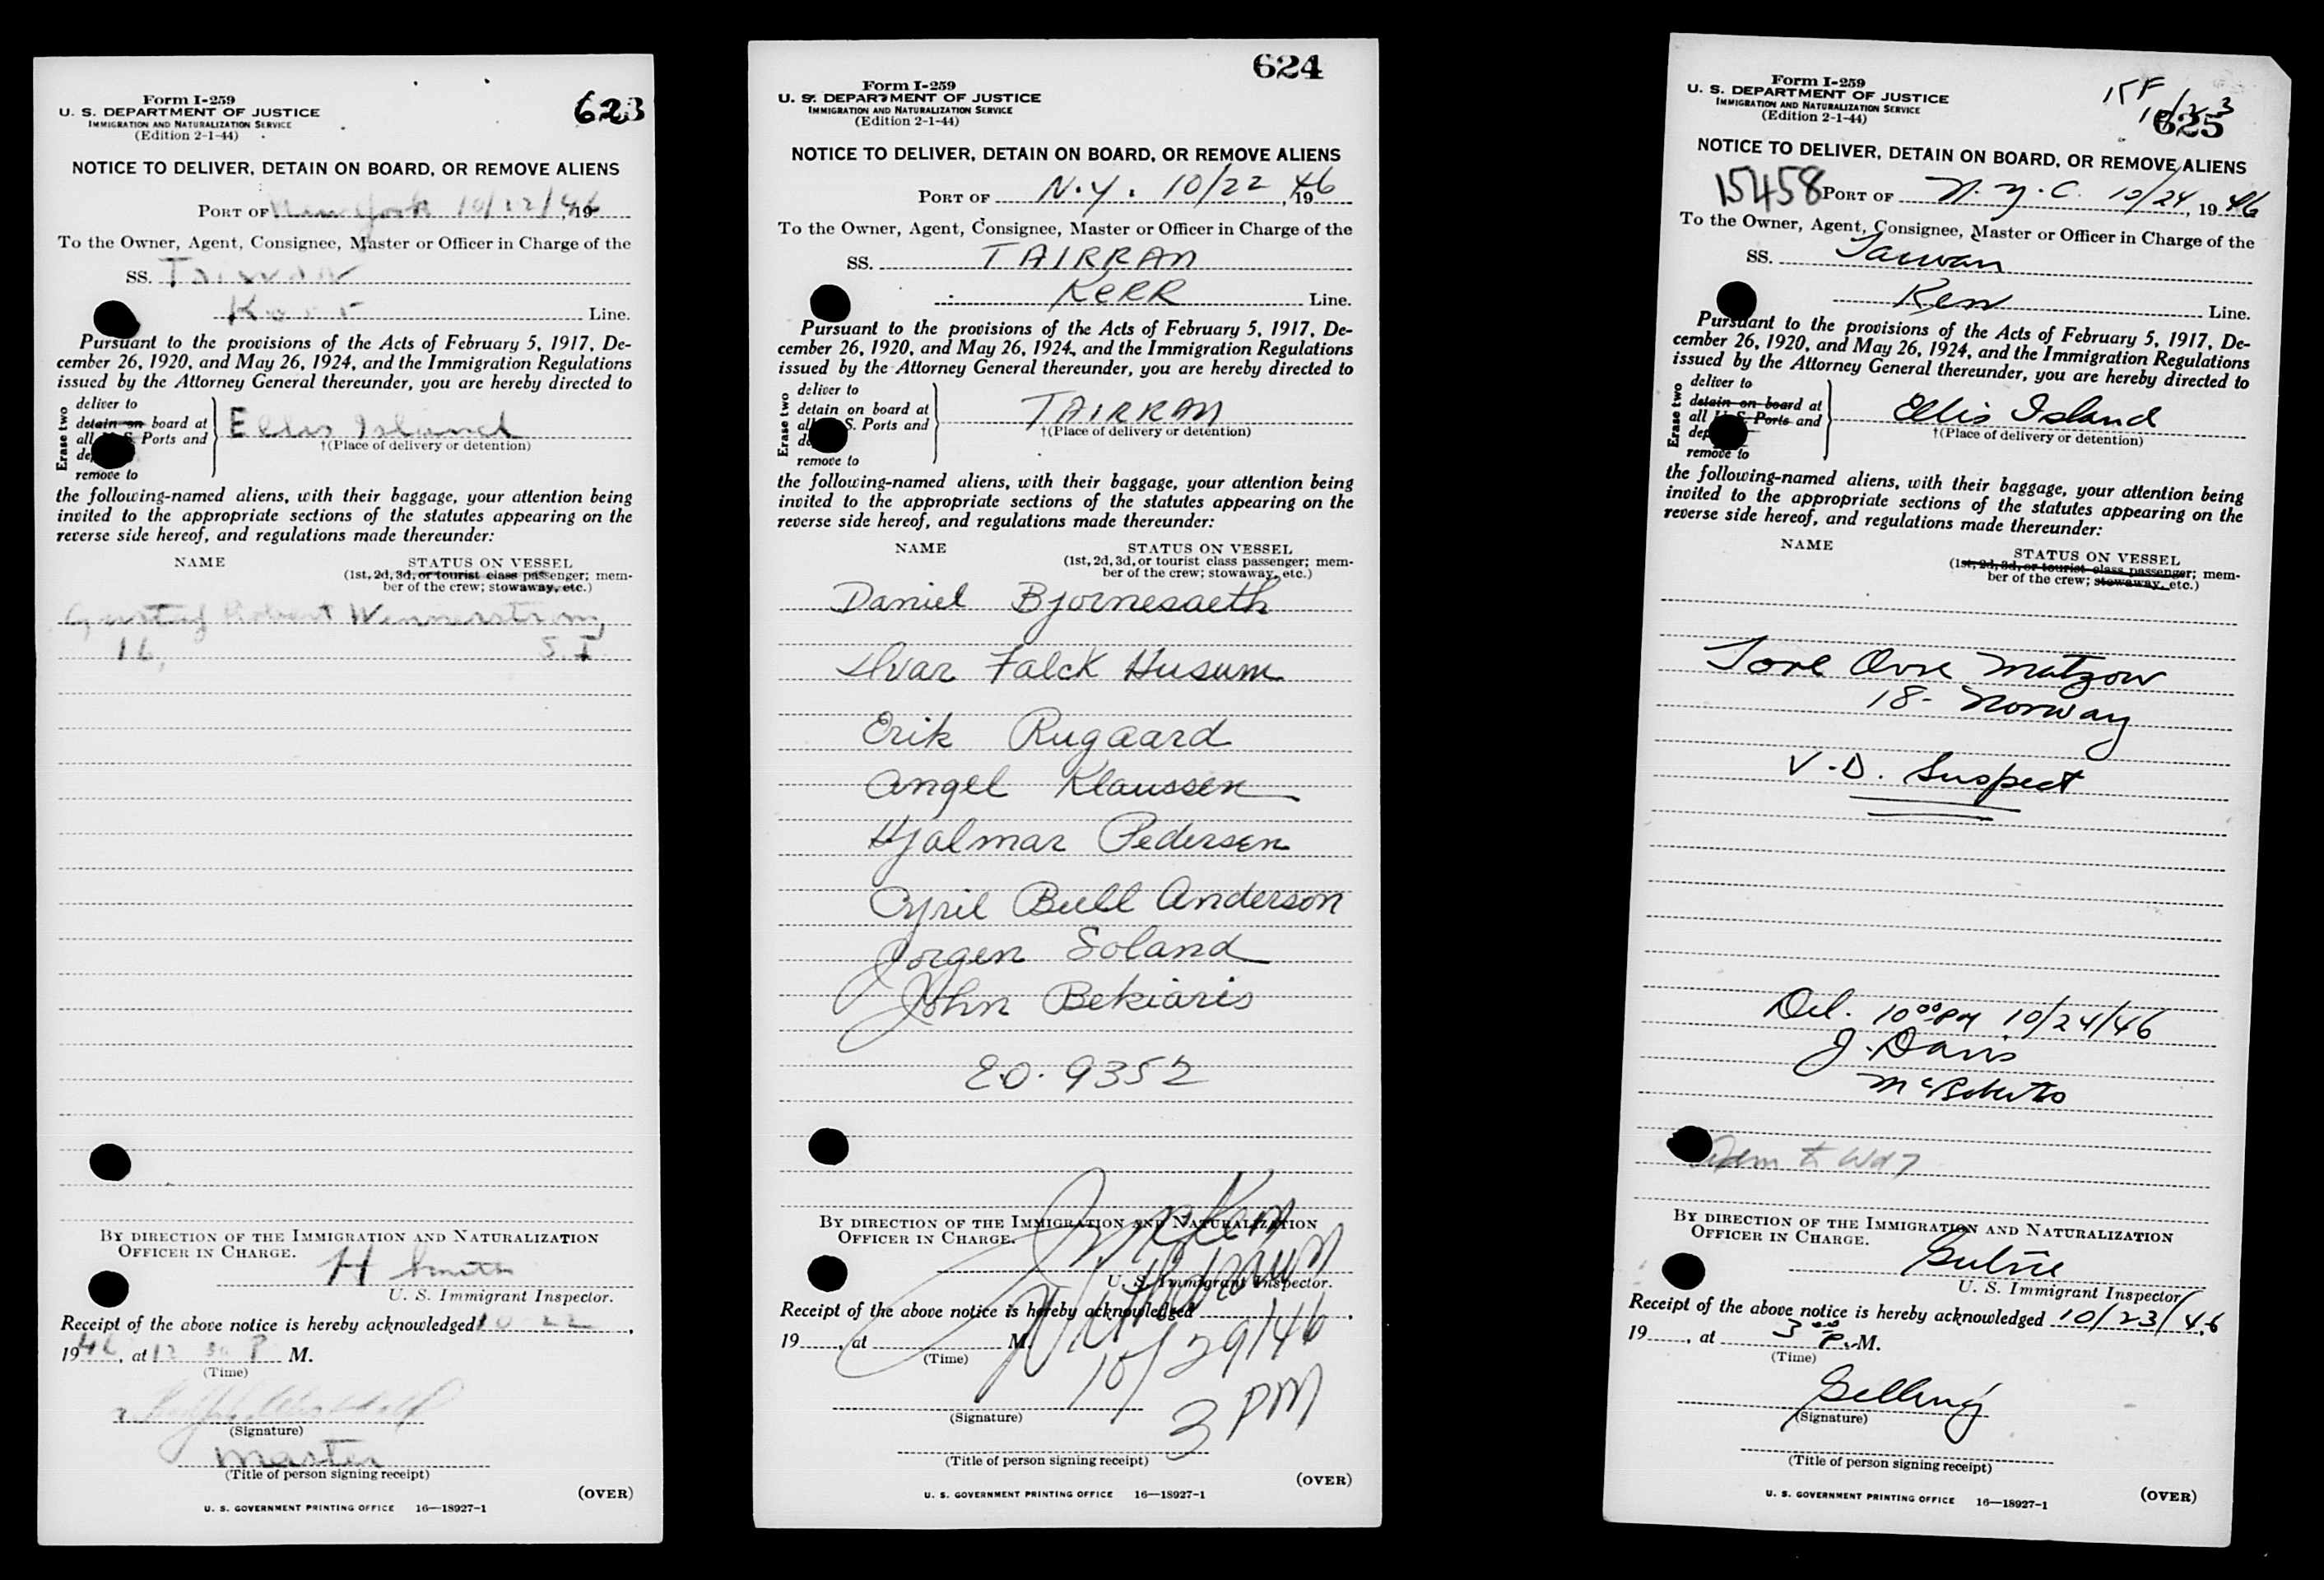 Form I-259
U. S. DEPARTMENT OF JUSTICE
IMMIGRATION AND NATURALIZATION SERVICE
(Edition 2-1-44)
623
NOTICE TO DELIVER, DETAIN ON BOARD, OR REMOVE ALIENS
PORT OF New York 10/22/46, 19
To the Owner, Agent, Consignee, Master or Officer in Charge of the
SS.
Line.
Pursuant to the provisions of the Acts of February 5, 1917, De-
cember 26, 1920, and May 26, 1924, and the Immigration Regulations
issued by the Attorney General thereunder, you are hereby directed to
Erase two
deliver to
detain on board at
all U. S. Ports and
remove to
Ellis Island
†(Place of delivery or detention)
the following-named aliens, with their baggage, your attention being
invited to the appropriate sections of the statutes appearing on the
reverse side hereof, and regulations made thereunder:
NAME STATUS ON VESSEL
(1st, 2d, 3d, or tourist class passenger; mem-
ber of the crew; stowaway, etc.)
Gustaf Robert Winnerstrom
16, S. I
BY DIRECTION OF THE IMMIGRATION AND NATURALIZATION
OFFICER IN CHARGE.
H Smith
U. S. Immigrant Inspector.
Receipt of the above notice is hereby acknowledged 10 22,
1946, at 12 30 P M.
(Time)
(Signature)
Master
(Title of person signing receipt)
(OVER)
U. S. GOVERNMENT PRINTING OFFICE 16—18927-1
624
Form I-259
U. S. DEPARTMENT OF JUSTICE
IMMIGRATION AND NATURALIZATION SERVICE
(Edition 2-1-44)
NOTICE TO DELIVER, DETAIN ON BOARD, OR REMOVE ALIENS
PORT OF N.Y. 10/22, 1946
To the Owner, Agent, Consignee, Master or Officer in Charge of the
SS. TAIRRAN
KERR Line.
Pursuant to the provisions of the Acts of February 5, 1917, De-
cember 26, 1920, and May 26, 1924, and the Immigration Regulations
issued by the Attorney General thereunder, you are hereby directed to
Erase two
deliver to
detain on board at
all U. S. Ports and
remove to
TAIRRAN
†(Place of delivery or detention)
the following-named aliens, with their baggage, your attention being
invited to the appropriate sections of the statutes appearing on the
reverse side hereof, and regulations made thereunder:
NAME STATUS ON VESSEL
(1st, 2d, 3d, or tourist class passenger; mem-
ber of the crew; stowaway, etc.)
Daniel Bjornesaeth
Ivar Falck Husum
Erik Rugaard
Angel Klaussen
Hjalmar Pedersen
Cyril Bull Anderson
Jorgen Soland
John Bekiaris
E.O. 9352
BY DIRECTION OF THE IMMIGRATION AND NATURALIZATION
OFFICER IN CHARGE.
U. S. Immigrant Inspector.
Withdrawn
Receipt of the above notice is hereby acknowledged
19 , at M.
(Time)
10/29/46
3 PM
(Signature)
(Title of person signing receipt)
(OVER)
U. S. GOVERNMENT PRINTING OFFICE 16—18927-1
Form I-259
U. S. DEPARTMENT OF JUSTICE
IMMIGRATION AND NATURALIZATION SERVICE
(Edition 2-1-44)
10/23
625
NOTICE TO DELIVER, DETAIN ON BOARD, OR REMOVE ALIENS
15458 PORT OF N.Y.C. 10/24, 1946
To the Owner, Agent, Consignee, Master or Officer in Charge of the
SS. Taiwan
Kerr Line.
Pursuant to the provisions of the Acts of February 5, 1917, De-
cember 26, 1920, and May 26, 1924, and the Immigration Regulations
issued by the Attorney General thereunder, you are hereby directed to
Erase two
deliver to
detain on board at
all U. S. Ports and
remove to
Ellis Island
†(Place of delivery or detention)
the following-named aliens, with their baggage, your attention being
invited to the appropriate sections of the statutes appearing on the
reverse side hereof, and regulations made thereunder:
NAME STATUS ON VESSEL
(1st, 2d, 3d, or tourist class passenger; mem-
ber of the crew; stowaway, etc.)
Tore Ovre Matzow
18 - Norway
V.D. Suspect
Del. 10 00 PM 10/24/46
J. Davis
McRoberts
BY DIRECTION OF THE IMMIGRATION AND NATURALIZATION
OFFICER IN CHARGE.
U. S. Immigrant Inspector
Receipt of the above notice is hereby acknowledged 10/23/46
19 , at 3 00 P. M.
(Time)
(Signature)
(Title of person signing receipt)
(OVER)
U. S. GOVERNMENT PRINTING OFFICE 16—18927-1